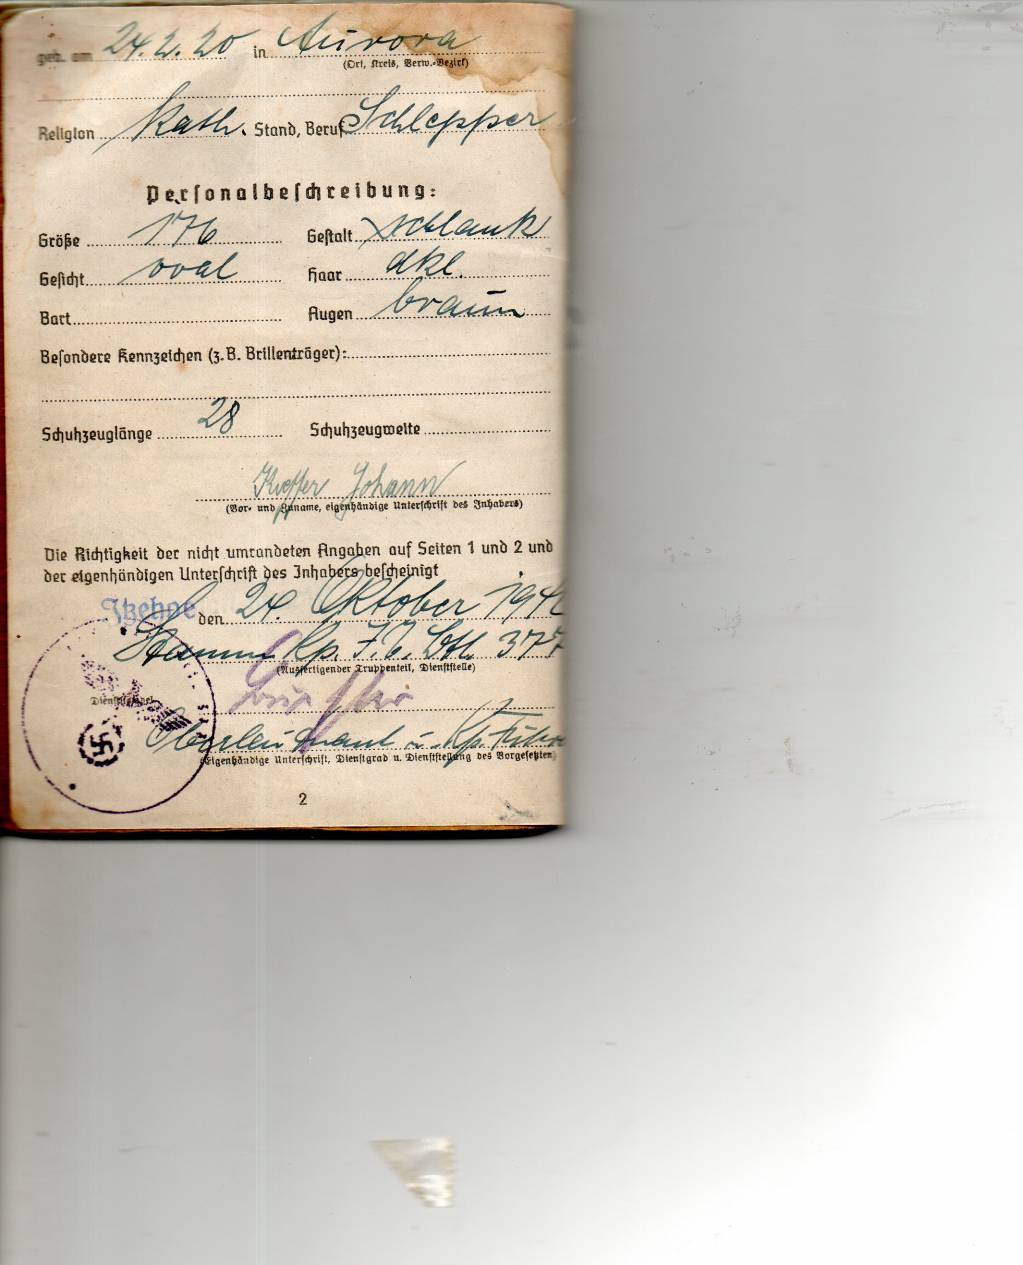 geb. am 24.2.20 in Aurora
(Ort, Kreis, Verw.-Bezirk)
Religion kath. Stand, Beruf Schlepper
Personalbeschreibung:
Größe 176 Gestalt schlank
Gesicht oval Haar dkl.
Bart Augen braun
Besondere Kennzeichen (z.B. Brillenträger):
Schuhzeuglänge 28 Schuhzeugweite
Kieffer Johann
(Vor- und Zuname, eigenhändige Unterschrift des Inhabers)
Die Richtigkeit der nicht umrandeten Angaben auf Seiten 1 und 2 und
der eigenhändigen Unterschrift des Inhabers bescheinigt
Itzehoe den 24. Oktober 194
Stamm Kp. 377
(Ausfertigender Truppenteil, Dienststelle)
Dienststempel
Oberleutnant u. Kp. Führer
(Eigenhändige Unterschrift, Dienstgrad u. Dienststellung des Vorgesetzten)
2